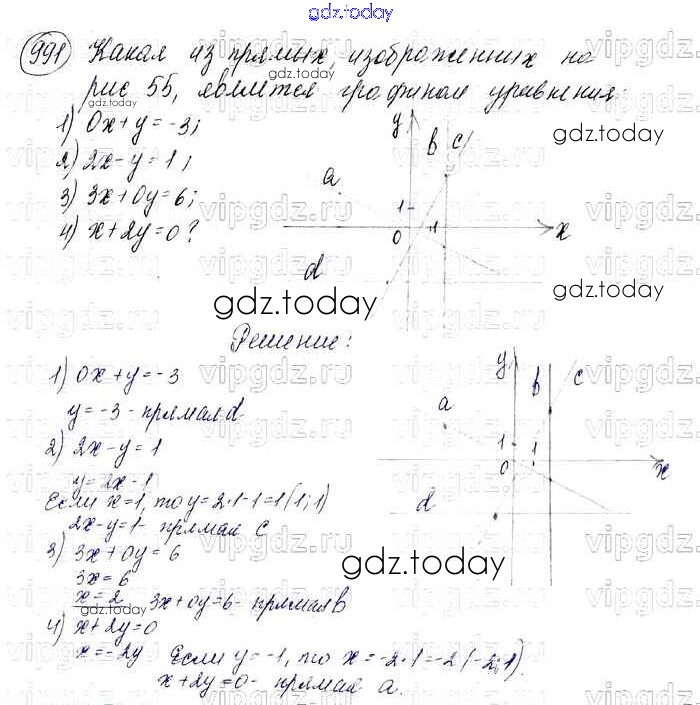 gdz.today
991) Какая из прямых, изображенных на
рис 55, является графиком уравнения:
1) 0x+y=-3;
2) 2x-y=1;
3) 3x+0y=6;
4) x+2y=0?
y b c
a
1
0 1 x
d
gdz.today
gdz.today
gdz.today
gdz.today
Решение:
1) 0x+y=-3
y=-3 - прямая d
2) 2x-y=1
y=2x-1
Если x=1, то y=2·1-1=1 (1;1)
2x-y=1- прямая c
3) 3x+0y=6
3x=6
x=2 3x+0y=6- прямая b
4) x+2y=0
x=-2y Если y=-1, то x=-2·1=-2 (-2;1).
x+2y=0- прямая a.
y b c
a
1 1
0 x
d
gdz.today
gdz.today
gdz.today
vipgdz.ru